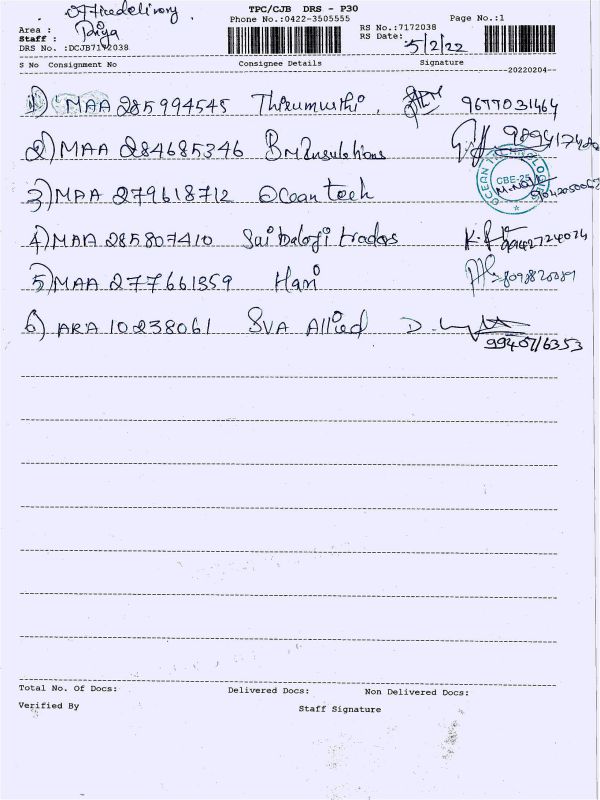 Officedelivery.
TPC/CJB DRS - P30
Phone No.:0422-3505555
Page No.:1
Area :
Staff : Priya
DRS No. :DCJB7172038
RS No.:7172038
RS Date: 5/2/22
S No Consignment No Consignee Details Signature
20220204
1) MAA 285994545 Thirumurthi. 9677031464
2) MAA 284685346 BM Insulations
3) MAA 279618712 Ocean tech
OCEAN TECHNOLOGIES
CBE-25
4) MAA 285807410 Sai balaji traders 9942724074
5) MAA 277661359 Hari
6) ARA 10238061 SVA Allied
9940716353
Total No. Of Docs: Delivered Docs: Non Delivered Docs:
Verified By Staff Signature